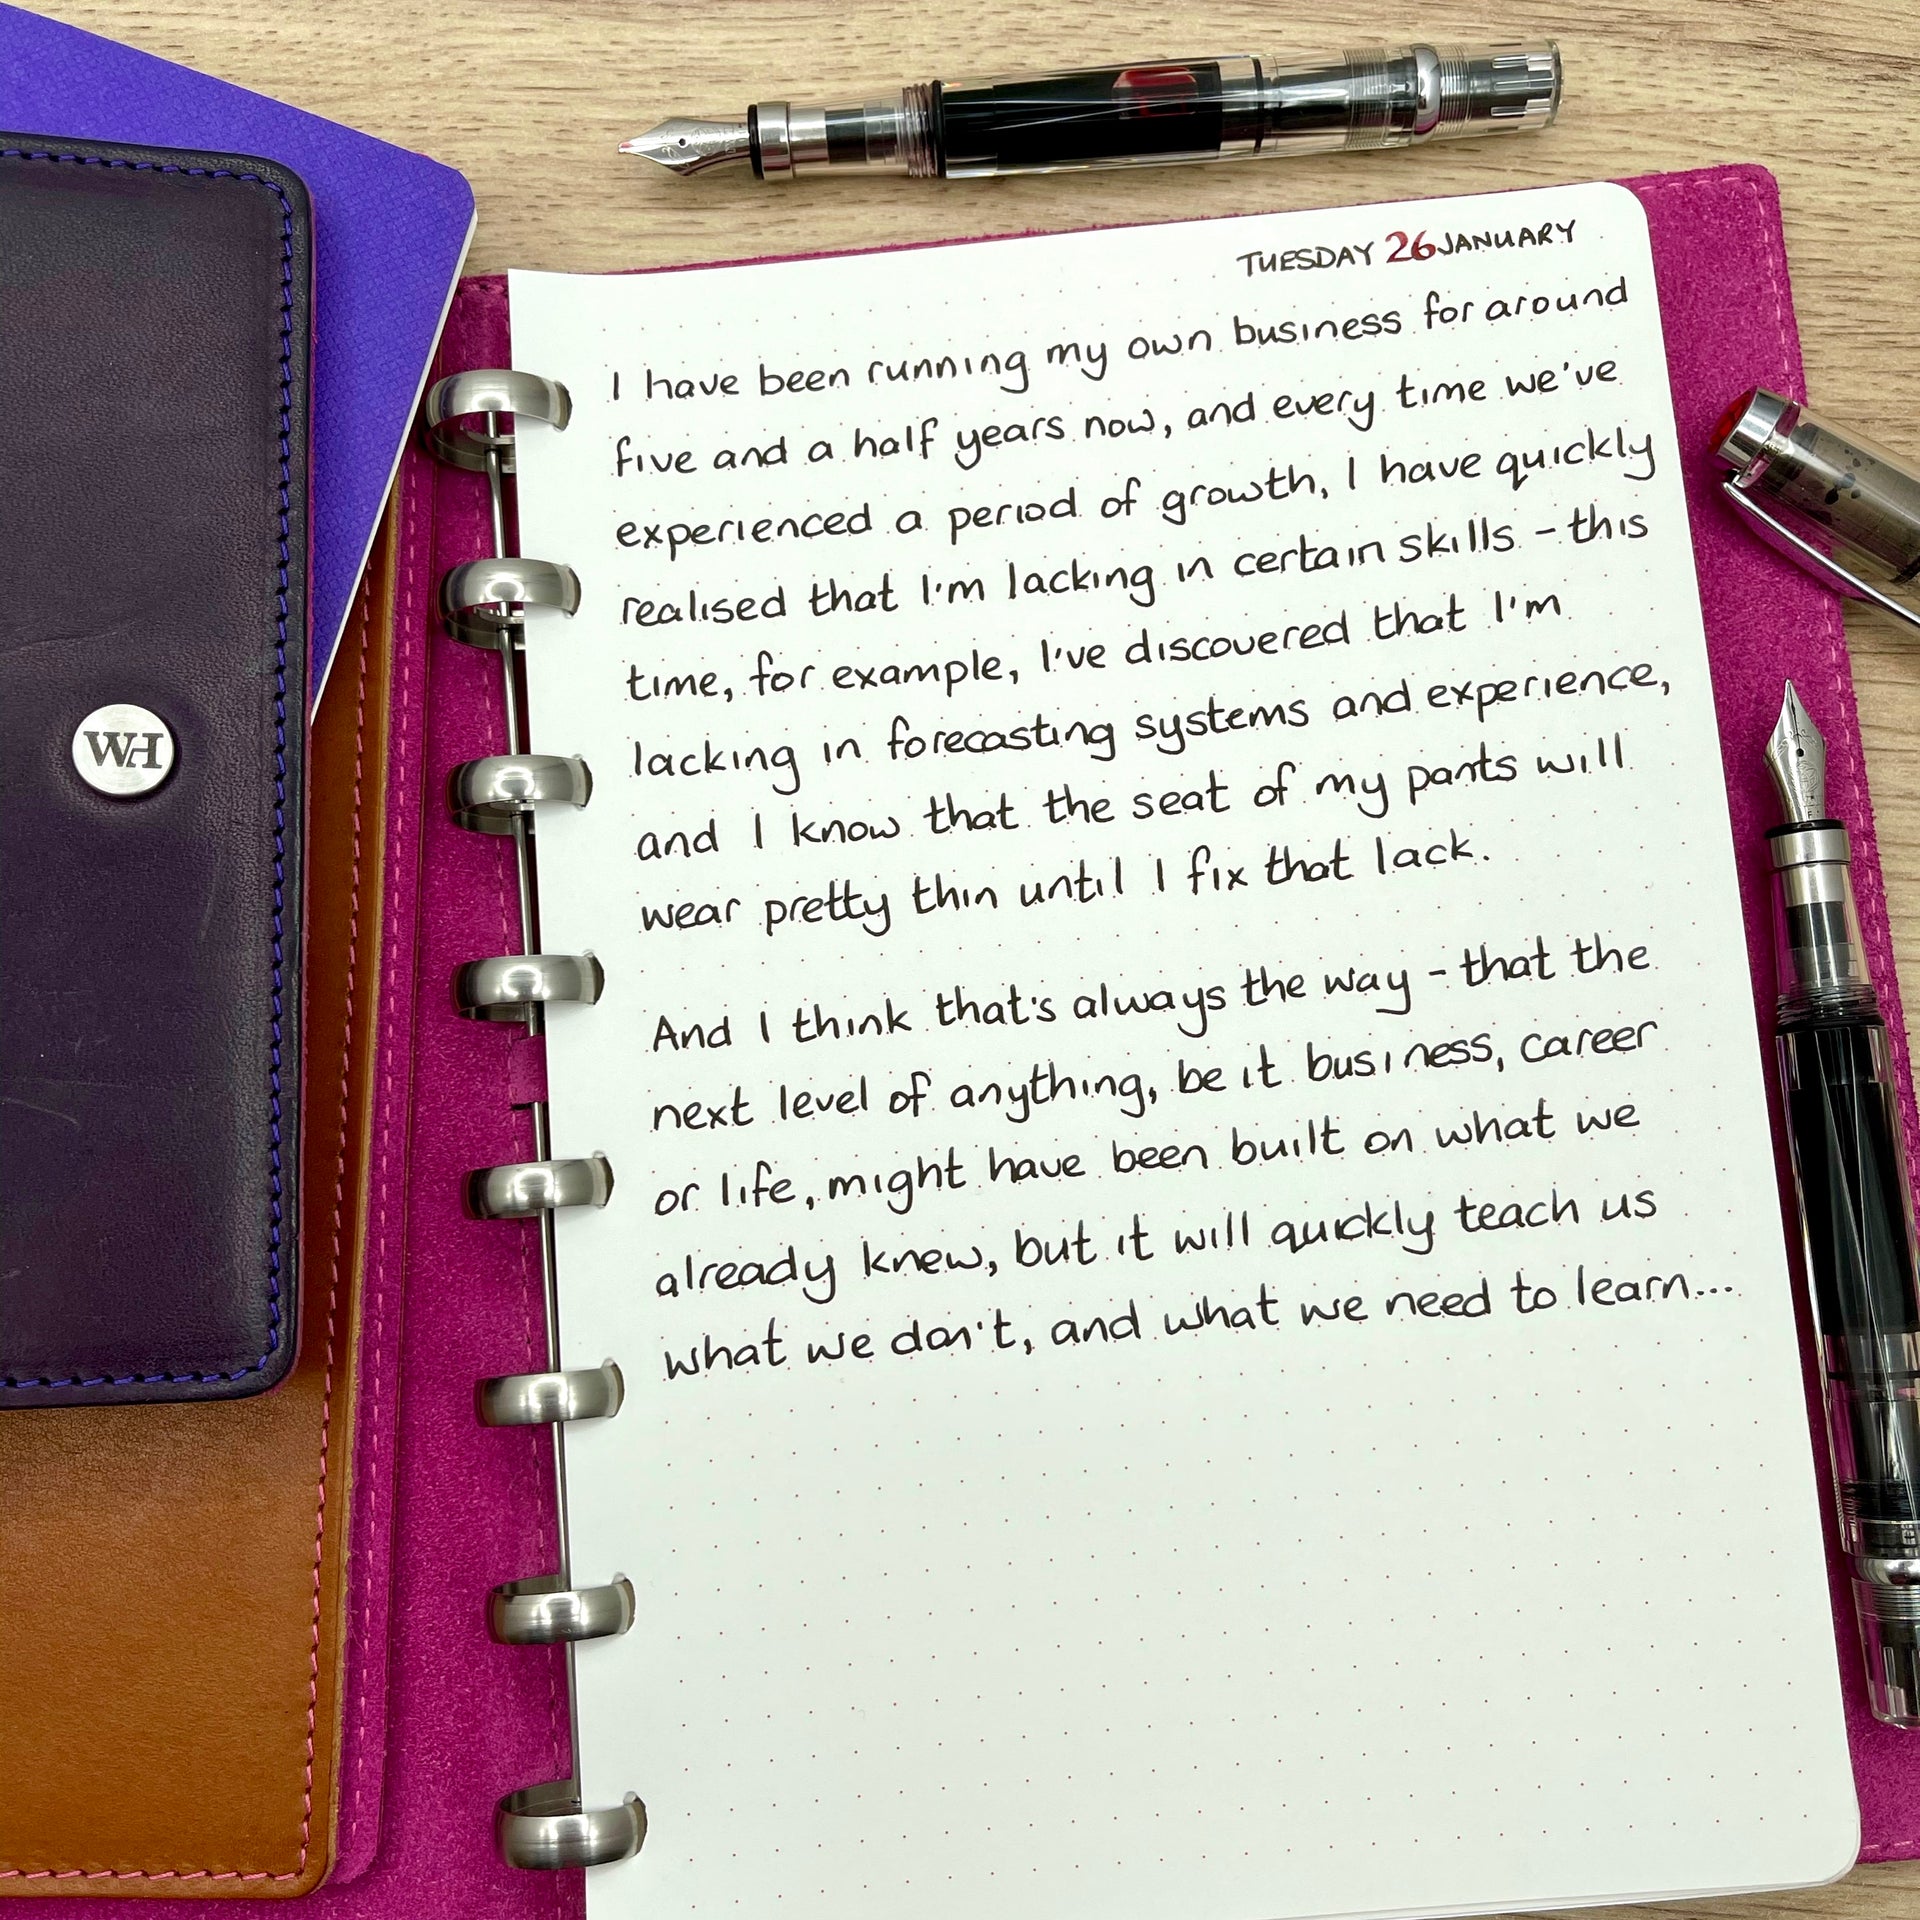 WH
TUESDAY 26 JANUARY
I have been running my own business for around
five and a half years now, and every time we've
experienced a period of growth, I have quickly
realised that I'm lacking in certain skills - this
time, for example, I've discovered that I'm
lacking in forecasting systems and experience,
and I know that the seat of my pants will
wear pretty thin until I fix that lack.
And I think that's always the way - that the
next level of anything, be it business, career
or life, might have been built on what we
already knew, but it will quickly teach us
what we don't, and what we need to learn...